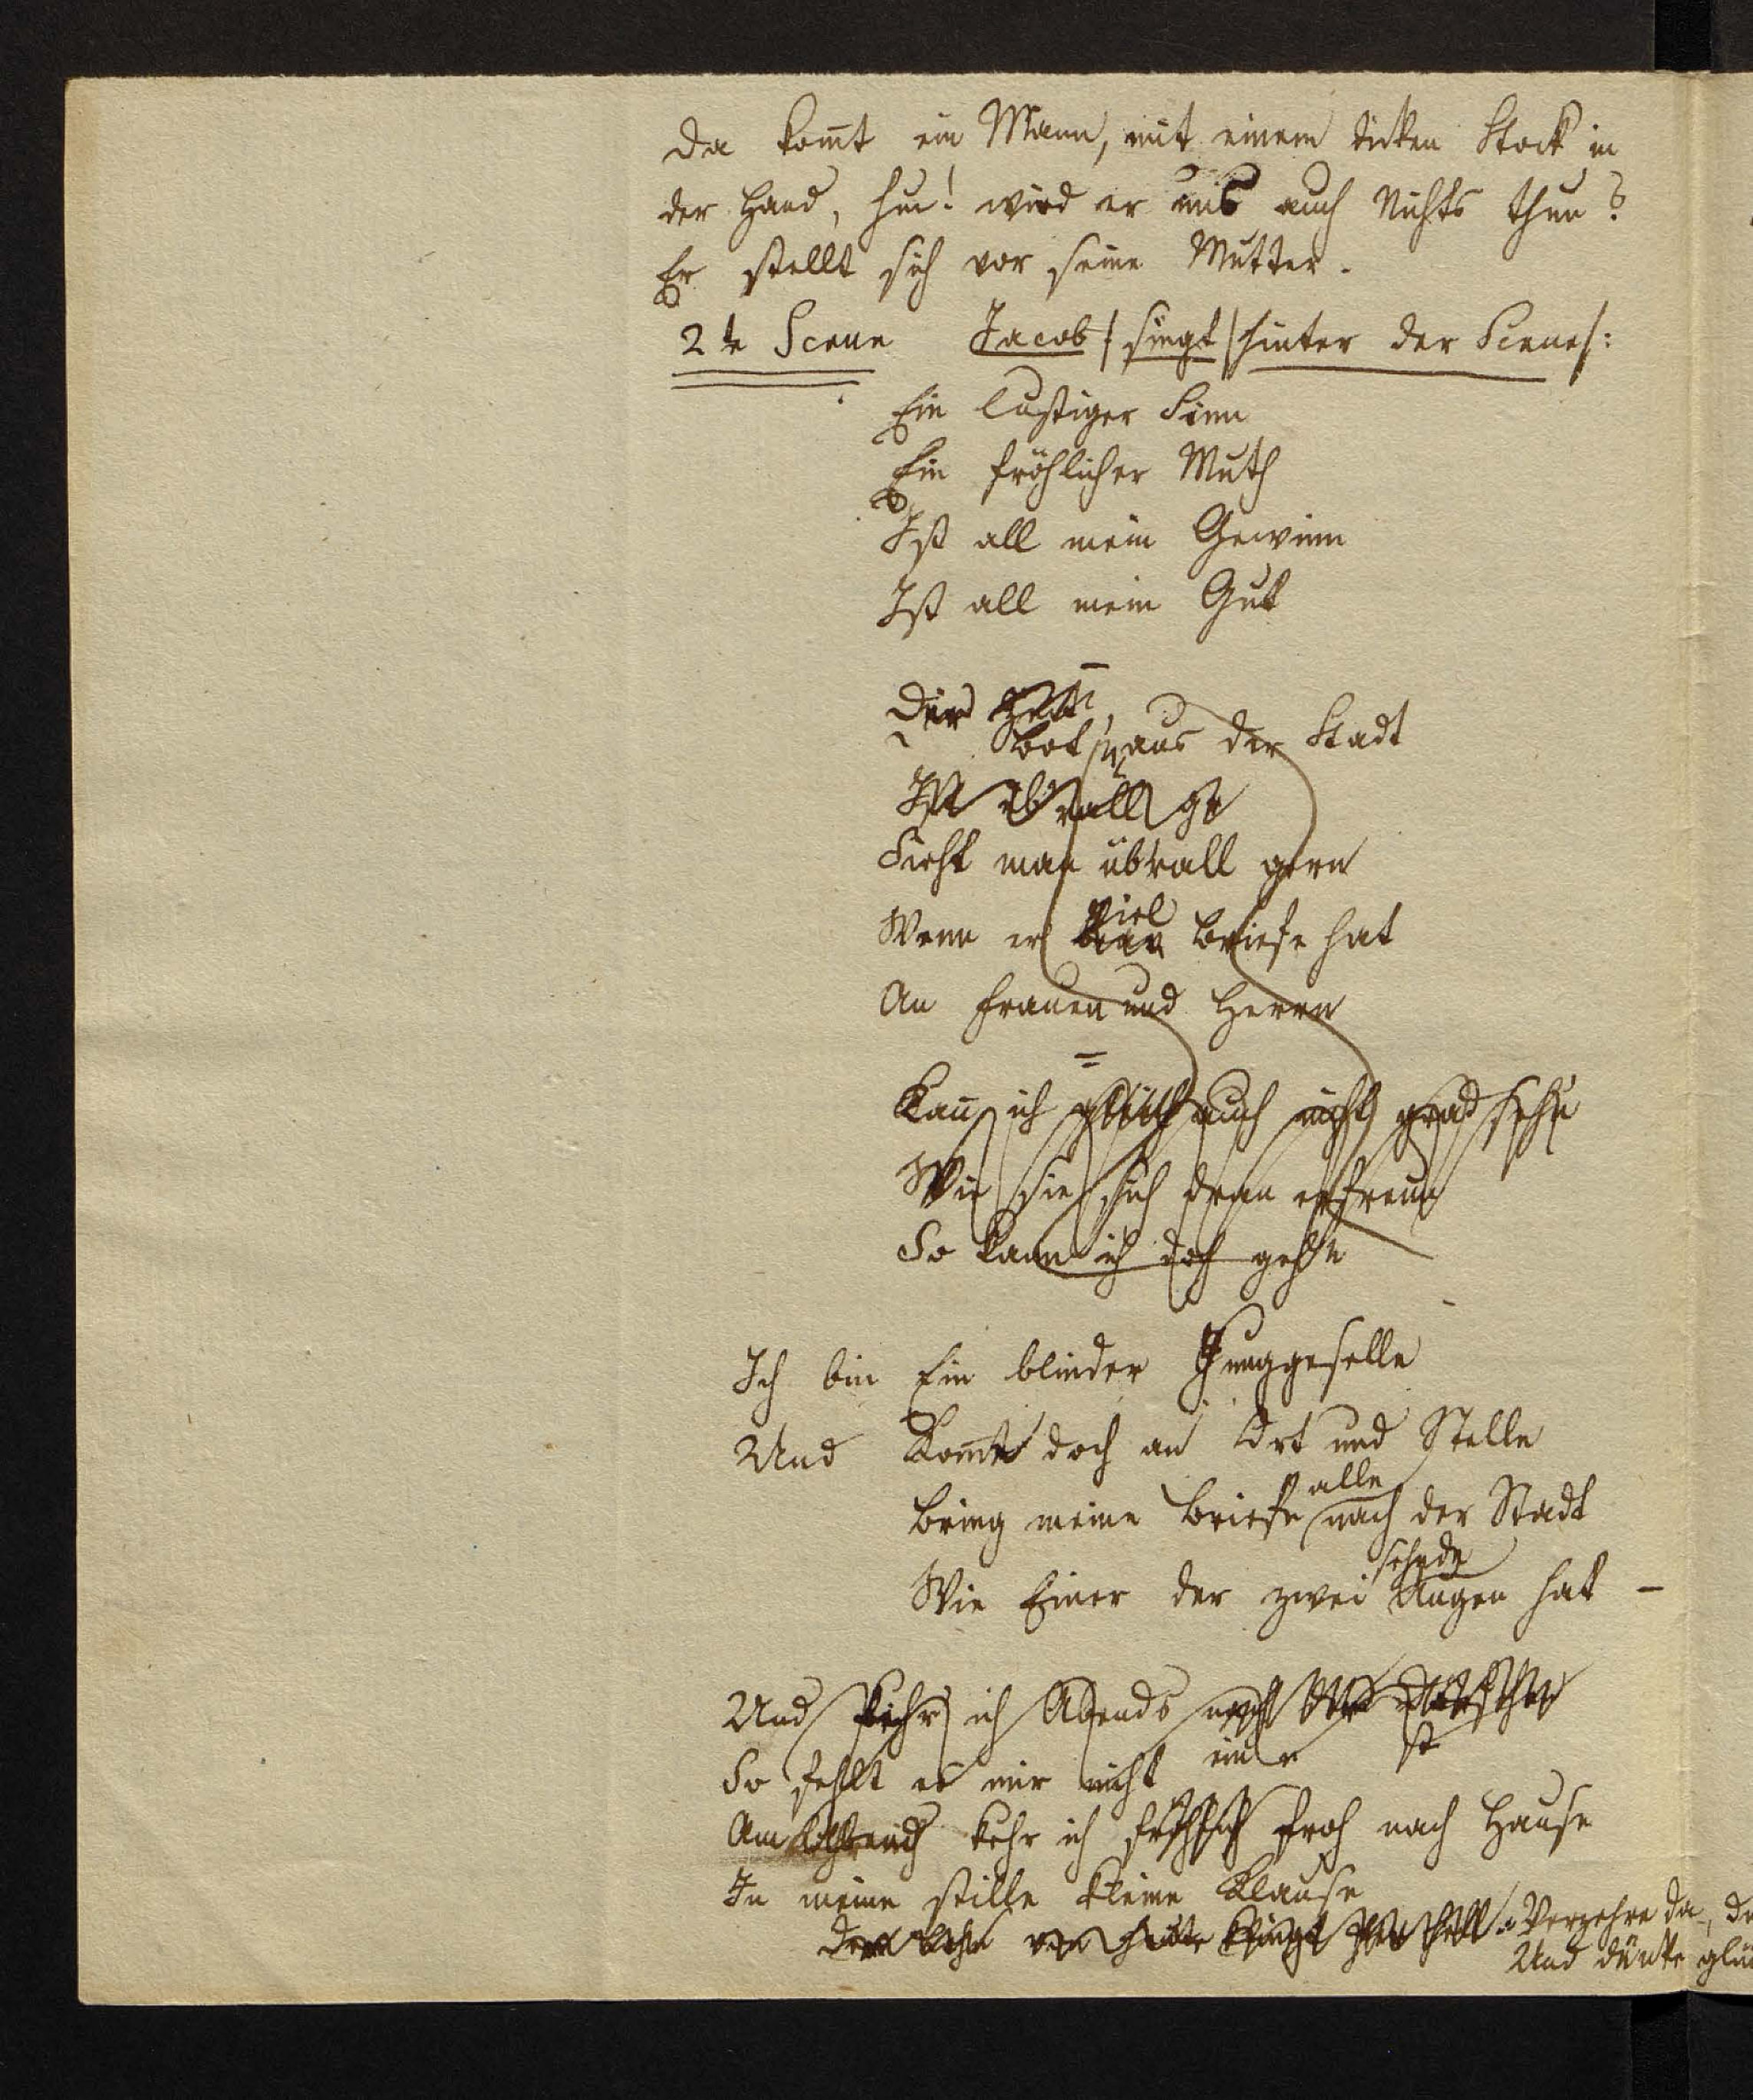 Da kom̄t ein Mann, mit einem dicken Stock in
der Hand, hu! wird er uns auch Nichts thun?
Er stellt sich vor seine Mutter.
2te Scene Jacob /singt/ hinter der Scene/:
Ein lustiger Sinn
Ein fröhlicher Muth
Ist all mein Gewinn
Ist all mein Gut
Der
Bot aus der Stadt
Ist überall ge
Sieht man überall gern
viel
Wenn er Briefe hat
An Frauen und Herrn
Kan̄ ich gleich auch nicht grad sehn
Wie sie sich dran erfreun
So kann ich doch gehn
Ich bin Ein blinder Junggeselle
Und Kom̄e doch an Ort und Stelle
alle
Bring meine Briefe nach der Stadt
sehnde
Wie Einer der zwei Augen hat –
Und kehr ich Abends nach
So fehlt es mir nicht
Am Abend kehr ich fröhlich froh nach Hause
In meine stille kleine Klause
Verzehre da, de
Und dünke glü